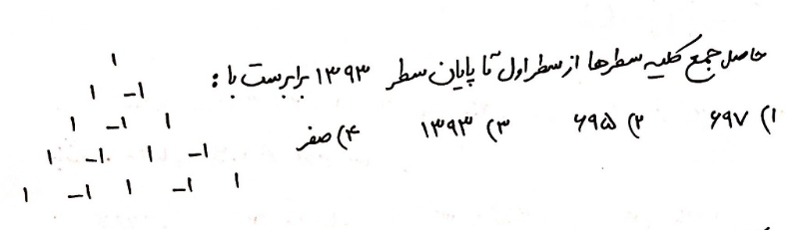 حاصل جمع کلیه سطرها از سطر اول تا پایان سطر ۱۳۹۳ برابرست با :
۱) ۶۹۷ ۲) ۶۹۵ ۳) ۱۳۹۳ ۴) صفر
۱
۱ -۱
۱ -۱ ۱
۱ -۱ ۱ -۱
۱ -۱ ۱ -۱ ۱